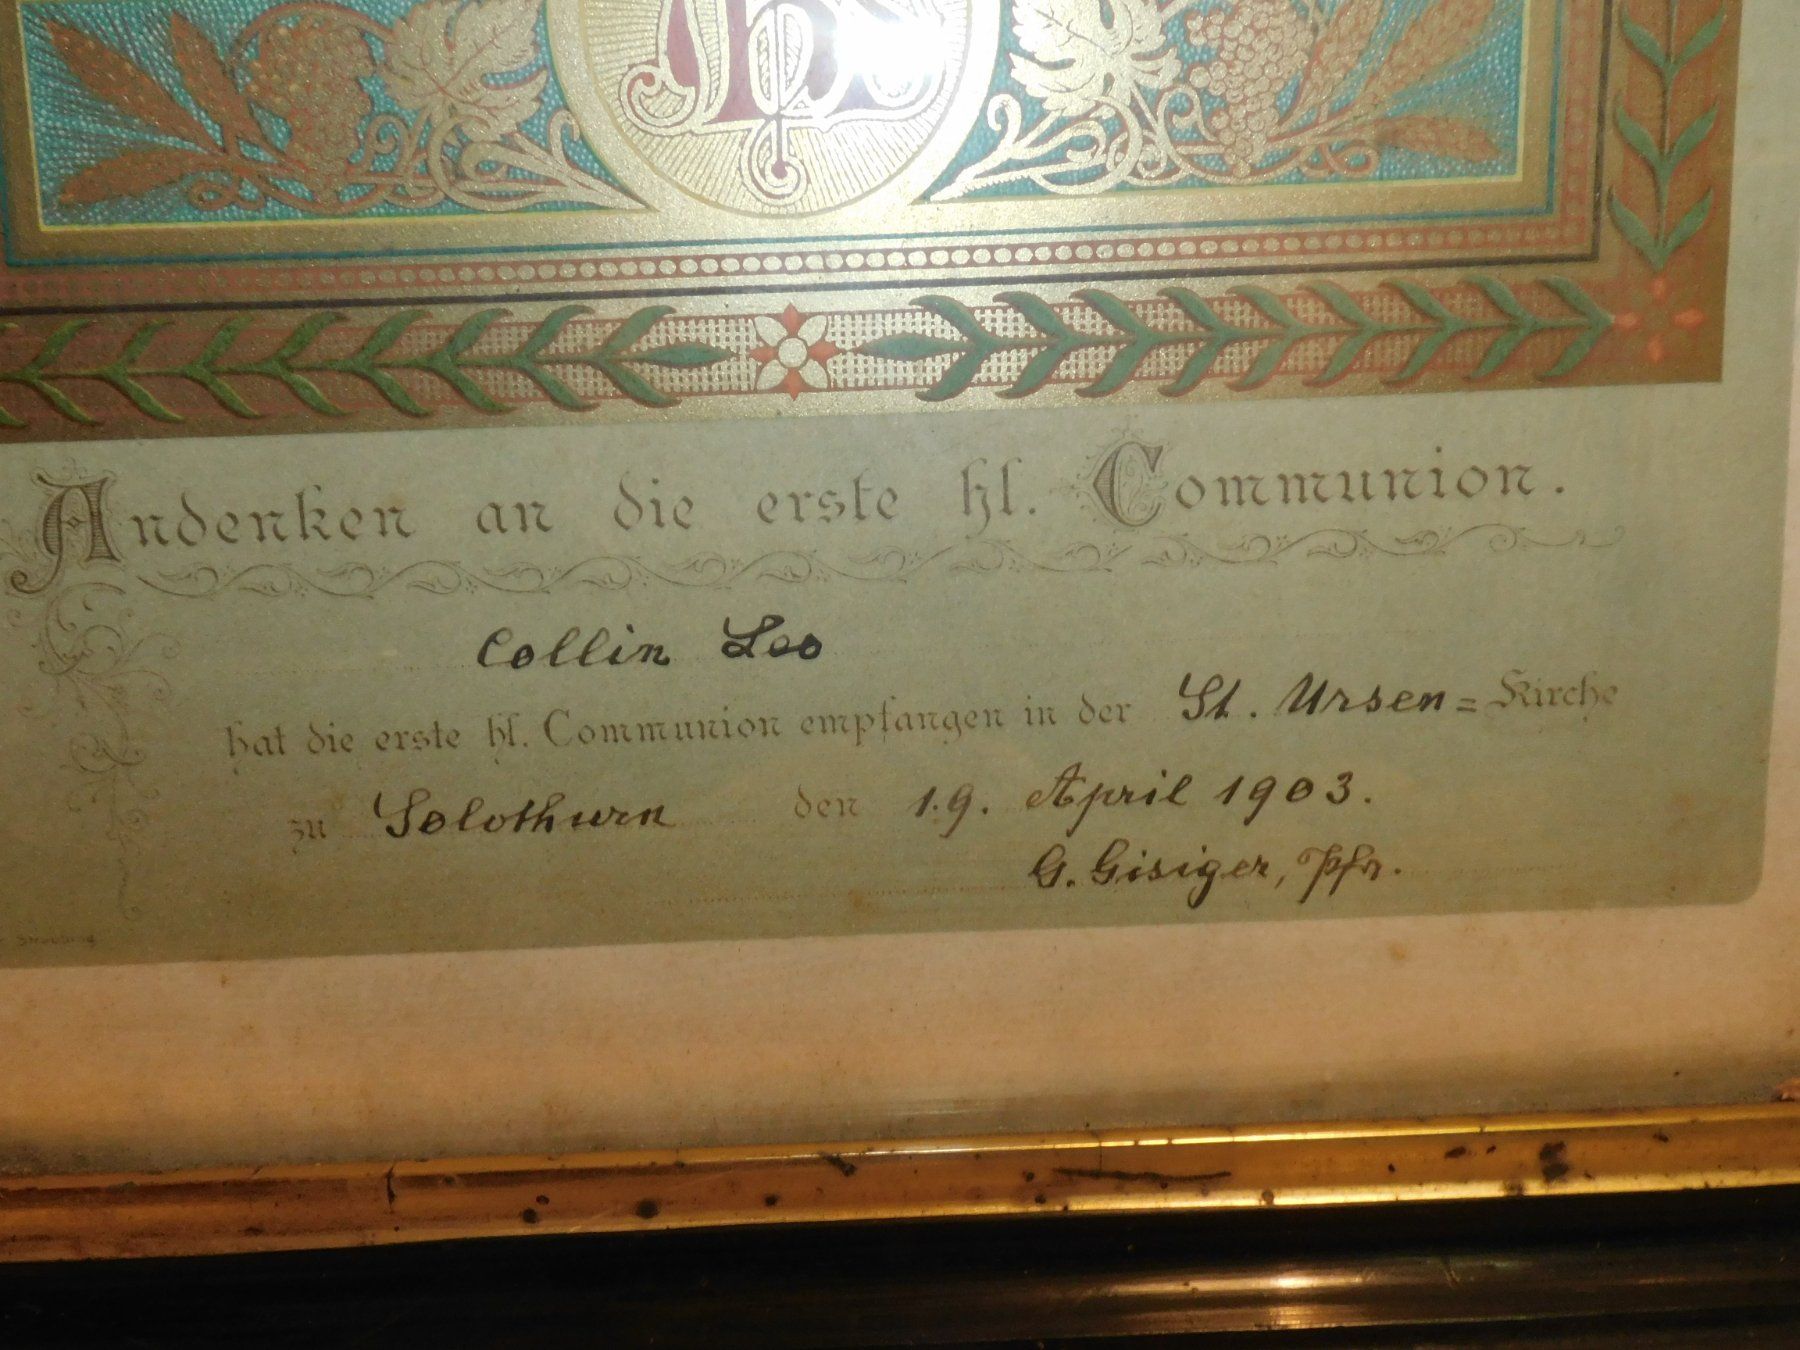 IHS
Andenken an die erste hl. Communion.
Collin Leo
hat die erste hl. Communion empfangen in der St. Ursen=Kirche
zu Solothurn den 19. April 1903.
G. Gisiger, Pfr.